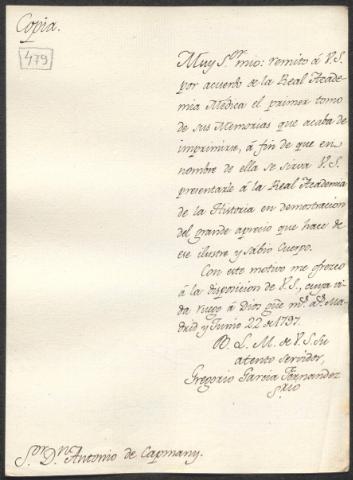 Copia.
479
Muy S.or mio: remito á V.S.
por acuerdo de la Real Acade-
mia Médica el primer tomo
de sus Memorias que acaba de
imprimirse, á fin de que en
nombre de ella se sirva V.S.
presentarle á la Real Academia
de la Historia en demostracion
del grande aprecio que hace de
ese ilustre y sabio Cuerpo.
Con este motivo me ofrezco
á la disposicion de V.S., cuya vi-
da ruego á Dios gũe m.s a.s Ma-
drid y Junio 22 de 1797.
B. L. M. de V.S. su
atento servidor,
Gregorio Garcia Fernandez
S.rio
S.or D.n Antonio de Capmany.